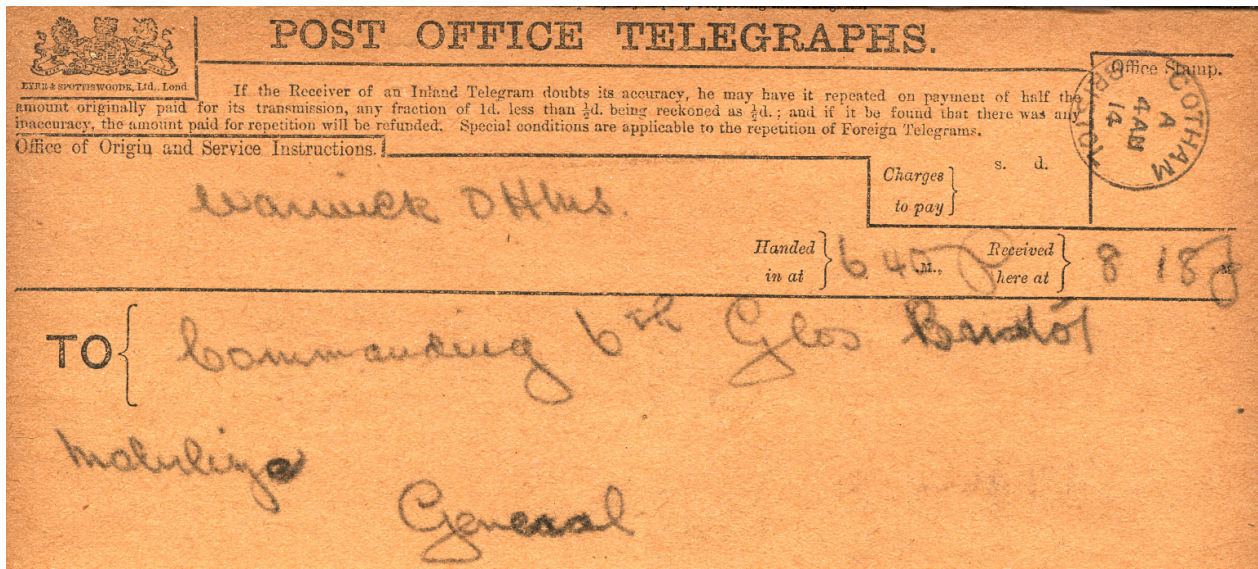 POST OFFICE TELEGRAPHS.
EYRE & SPOTTISWOODE, Ltd., Lond.
Office Stamp.
If the Receiver of an Inland Telegram doubts its accuracy, he may have it repeated on payment of half the
amount originally paid for its transmission, any fraction of 1d. less than ½d. being reckoned as ½d.; and if it be found that there was any
inaccuracy, the amount paid for repetition will be refunded. Special conditions are applicable to the repetition of Foreign Telegrams.
SCOTHAM
A
4 AU
14
BRISTOL
Office of Origin and Service Instructions.
s. d.
Charges
to pay
Warwick OHMS.
Handed
in at
6 45 p M.,
Received
here at
8 18 p M
TO
Commanding 6th Glos Bristol
Mobilize
General